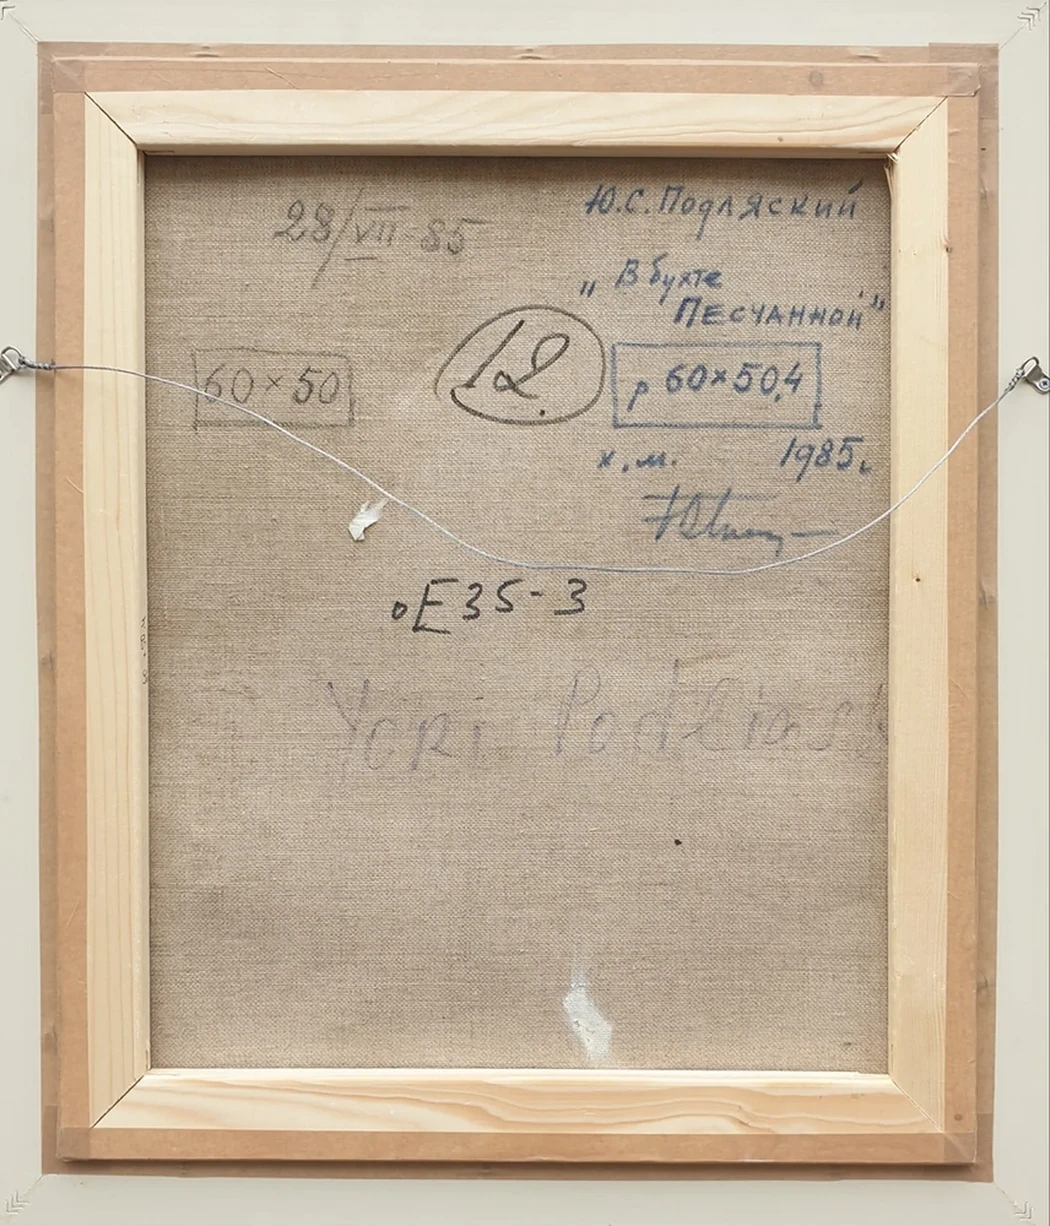 28/VII-85
Ю.С.Подляский
„В бухте
ПЕСЧАННОЙ"
60×50
12.
р 60×50,4
х.м. 1985г
E35-3
Yori Podlias